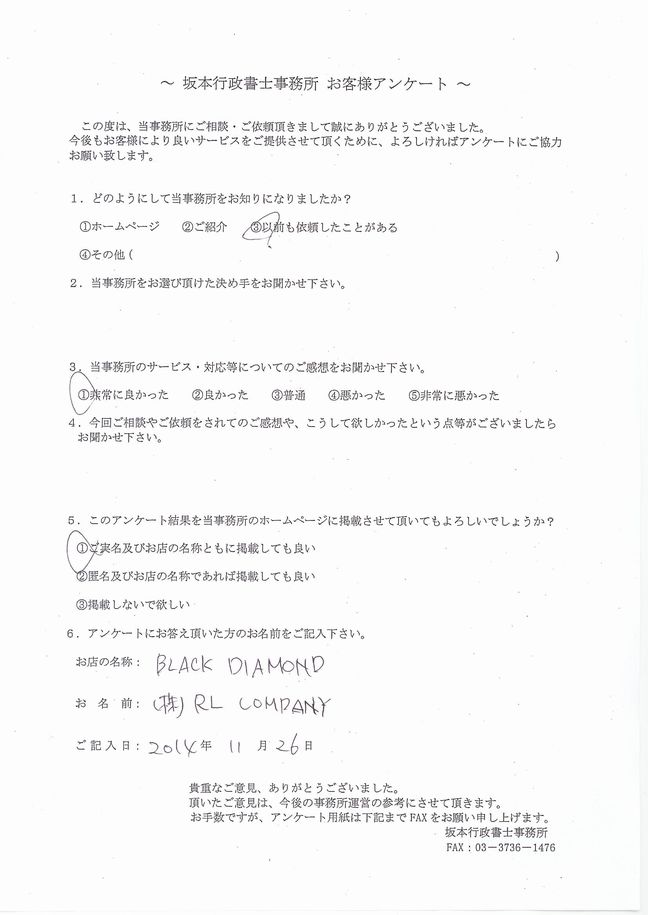 ～ 坂本行政書士事務所 お客様アンケート ～
この度は、当事務所にご相談・ご依頼頂きまして誠にありがとうございました。
今後もお客様により良いサービスをご提供させて頂くために、よろしければアンケートにご協力
お願い致します。
１．どのようにして当事務所をお知りになりましたか？
①ホームページ ②ご紹介 ③以前も依頼したことがある
④その他 ( )
２．当事務所をお選び頂けた決め手をお聞かせ下さい。
３．当事務所のサービス・対応等についてのご感想をお聞かせ下さい。
①非常に良かった ②良かった ③普通 ④悪かった ⑤非常に悪かった
４．今回ご相談やご依頼をされてのご感想や、こうして欲しかったという点等がございましたら
お聞かせ下さい。
５．このアンケート結果を当事務所のホームページに掲載させて頂いてもよろしいでしょうか？
①ご実名及びお店の名称ともに掲載しても良い
②匿名及びお店の名称であれば掲載しても良い
③掲載しないで欲しい
６．アンケートにお答え頂いた方のお名前をご記入下さい。
お店の名称： BLACK DIAMOND
お 名 前： (株) RL COMPANY
ご記入日： 2014 年 11 月 26 日
貴重なご意見、ありがとうございました。
頂いたご意見は、今後の事務所運営の参考にさせて頂きます。
お手数ですが、アンケート用紙は下記まで FAX をお願い申し上げます。
坂本行政書士事務所
FAX：03－3736－1476